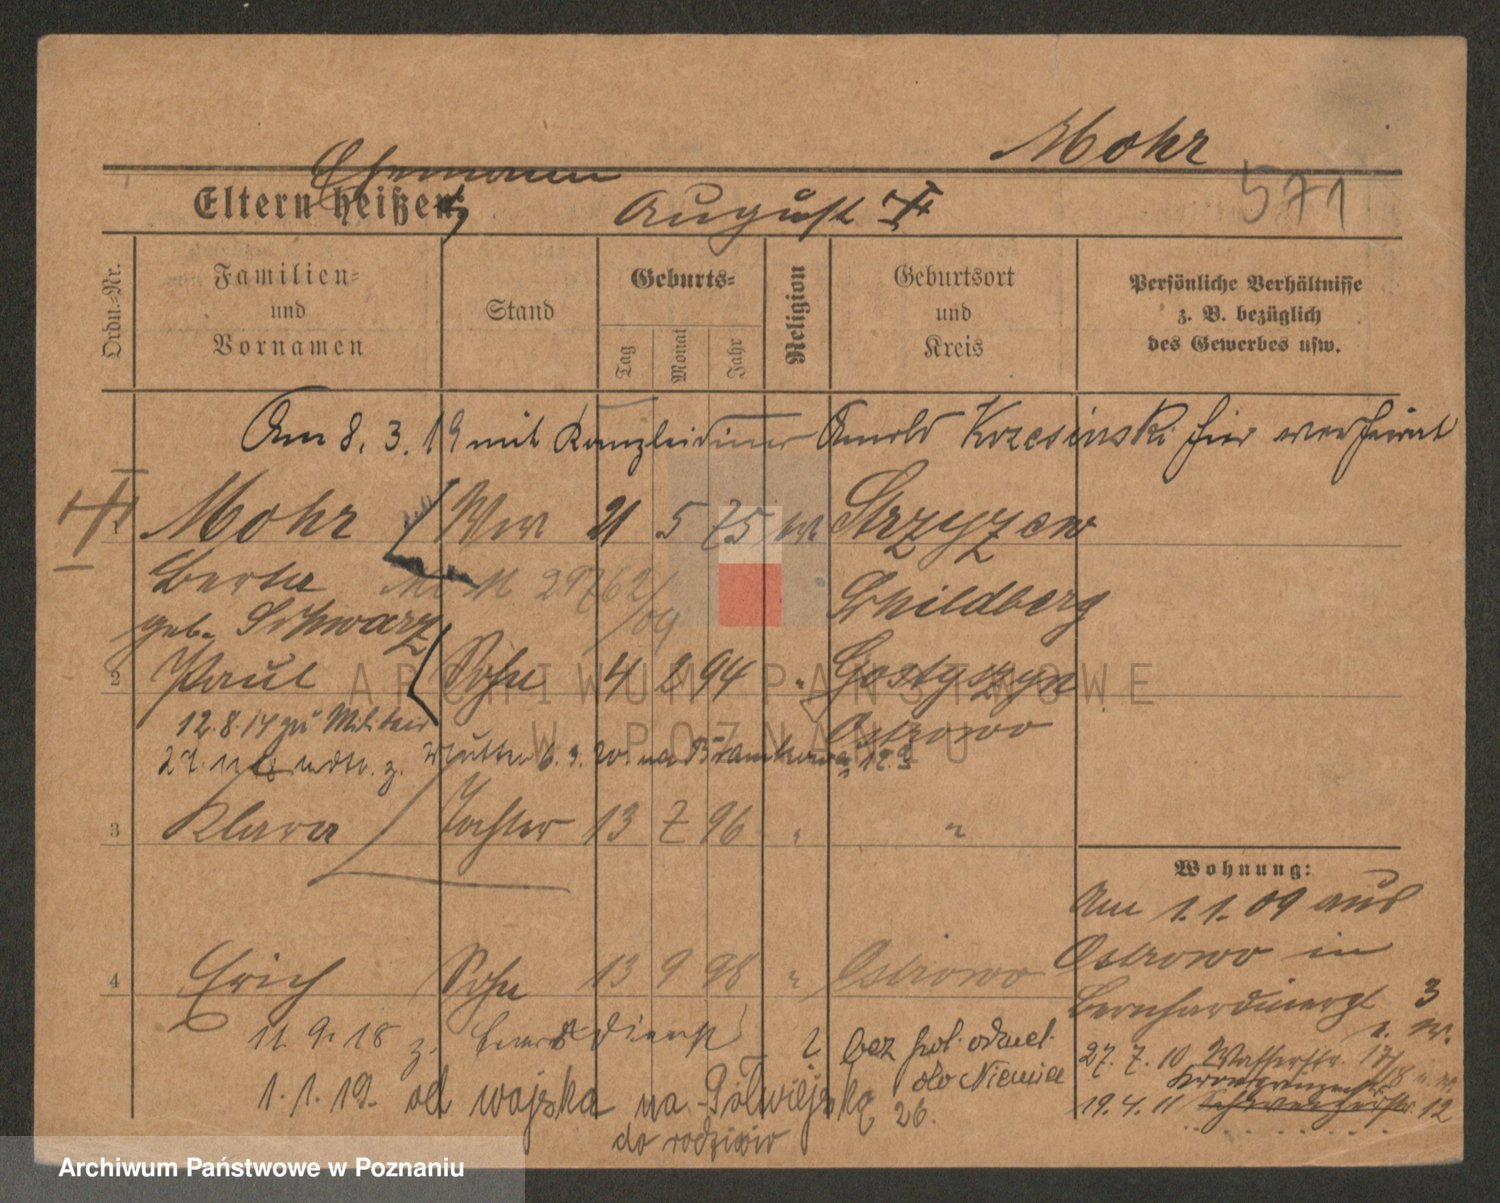 Mohr
Ehemann
Eltern heißen: August
571
Ordn.-Nr.
Familien-
und
Vornamen
Stand
Geburts-
Tag
Monat
Jahr
Religion
Geburtsort
und
Kreis
Persönliche Verhältnisse
z. B. bezüglich
des Gewerbes usw.
Am 8. 3. 19 mit Kanzleidiener Arnold Krzesinski hier verheirat
1 Mohr Ww 21 5 75 Strzyzew
Berta 29762/09 Schildberg
geb. Schwarz
2 Paul Sohn 4 2 94 " Gostyczyn
Ostrowo
12.8.14 zu Militär
z. Mutter 6. 9. 20 na
3 Klara Tochter 13 7 96 " "
Wohnung:
Am 1. 1. 09 aus
Ostrowo in
4 Erich Sohn 13 9 98 " Ostrowo
Bernhardinergt 3
11. 9. 18 z. dienst
bez pol. odmel.
do Niemiec
27. 7. 10 Wasserstr. 17/18
1. 1. 19. od wojska na Półwiejską 26.
19. 4. 11 12
do rodziców
ARCHIWUM PAŃSTWOWE
W POZNANIU
Archiwum Państwowe w Poznaniu